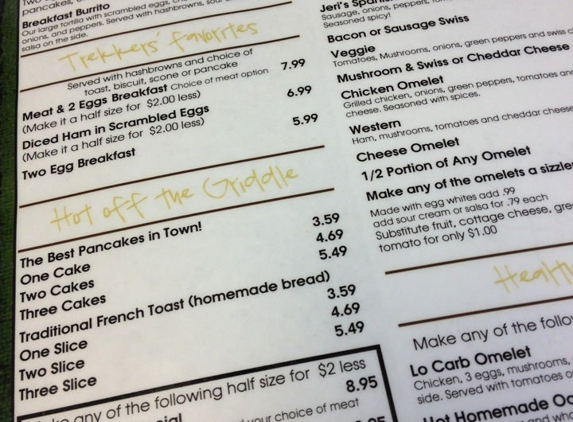 pancakes,
Breakfast Burrito
Our large tortilla with scrambled eggs,
onions, and peppers. Served with hashbrowns,
salsa on the side.
Trekkers' favorites
Served with hashbrowns and choice of
toast, biscuit, scone or pancake
Meat & 2 Eggs Breakfast Choice of meat option 7.99
(Make it a half size for $2.00 less)
Diced Ham in Scrambled Eggs 6.99
(Make it a half size for $2.00 less)
Two Egg Breakfast 5.99
Hot off the Griddle
The Best Pancakes in Town!
One Cake 3.59
Two Cakes 4.69
Three Cakes 5.49
Traditional French Toast (homemade bread)
One Slice 3.59
Two Slice 4.69
Three Slice 5.49
any of the following half size for $2 less
8.95
your choice of meat
Jeri's
Sausage, onions, peppers,
Seasoned spicy!
Bacon or Sausage Swiss
Veggie
Tomatoes, Mushrooms, onions, green peppers and swiss
Mushroom & Swiss or Cheddar Cheese
Chicken Omelet
Grilled chicken, onions, green peppers, tomatoes and
cheese. Seasoned with spices.
Western
Ham, mushrooms, tomatoes and cheddar cheese
Cheese Omelet
1/2 Portion of Any Omelet
Make any of the omelets a sizzler
Made with egg whites add .99
add sour cream or salsa for .79 each
Substitute fruit, cottage cheese,
tomato for only $1.00
Make any of the
Lo Carb Omelet
Chicken, 3 eggs, mushrooms,
side. Served with tomatoes
Hot Homemade